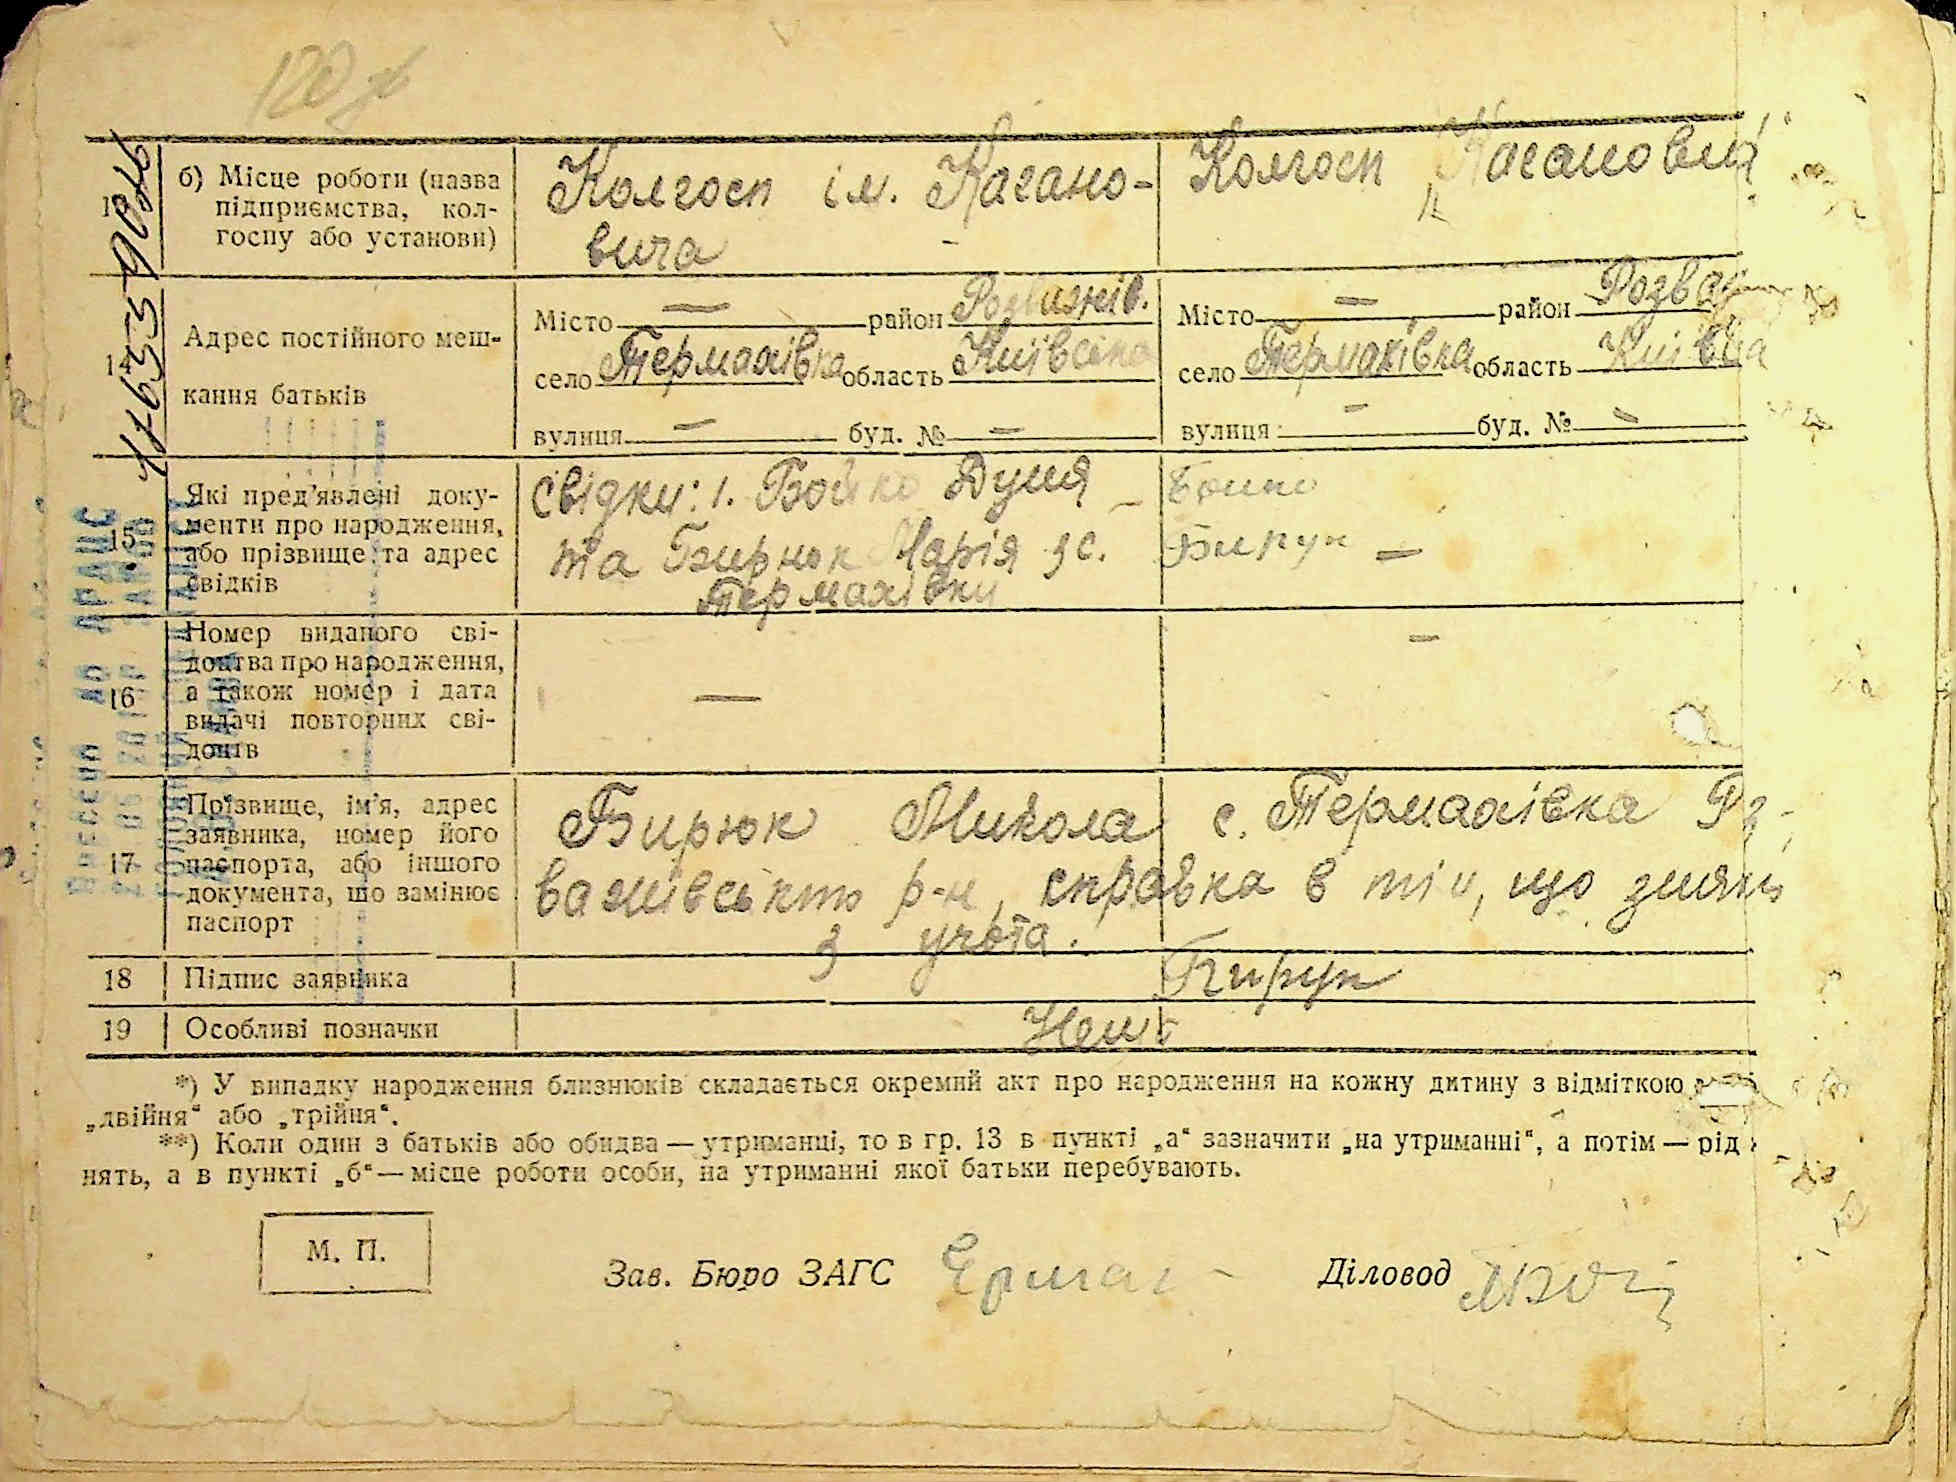 120
б) Місце роботи (назва підприємства, колгоспу або установи)
Колгосп ім. Кагановича
Колгосп „Кагановича
Адрес постійного мешкання батьків
Місто — район Розважів.
село Термахівка область Київська
вулиця — буд. № —
Місто — район Розваж
село Термахівка область Київська
вулиця — буд. № —
15
Які пред’явлені документи про народження, або прізвище та адрес свідків
Свідки: 1. Бойко Дуня —
та Бирюк Марія з с.
Термахівки
Бойко
Бирук —
16
Номер виданого свідоцтва про народження, а також номер і дата видачі повторних свідоцтв
—
—
17
Прізвище, ім’я, адрес заявника, номер його паспорта, або іншого документа, що замінює паспорт
Бирюк Микола с. Термахівка Роз-
важівського р-н, справка в тім, що знята
з учота.
18
Підпис заявника
Бирук
19
Особливі позначки
Нема
*) У випадку народження близнюків складається окремий акт про народження на кожну дитину з відміткою
„двійня“ або „трійня“.
**) Коли один з батьків або обидва — утриманці, то в гр. 13 в пункті „а“ зазначити „на утриманні“, а потім — рід
нять, а в пункті „б“ — місце роботи особи, на утриманні якої батьки перебувають.
М. П.
Зав. Бюро ЗАГС
Діловод